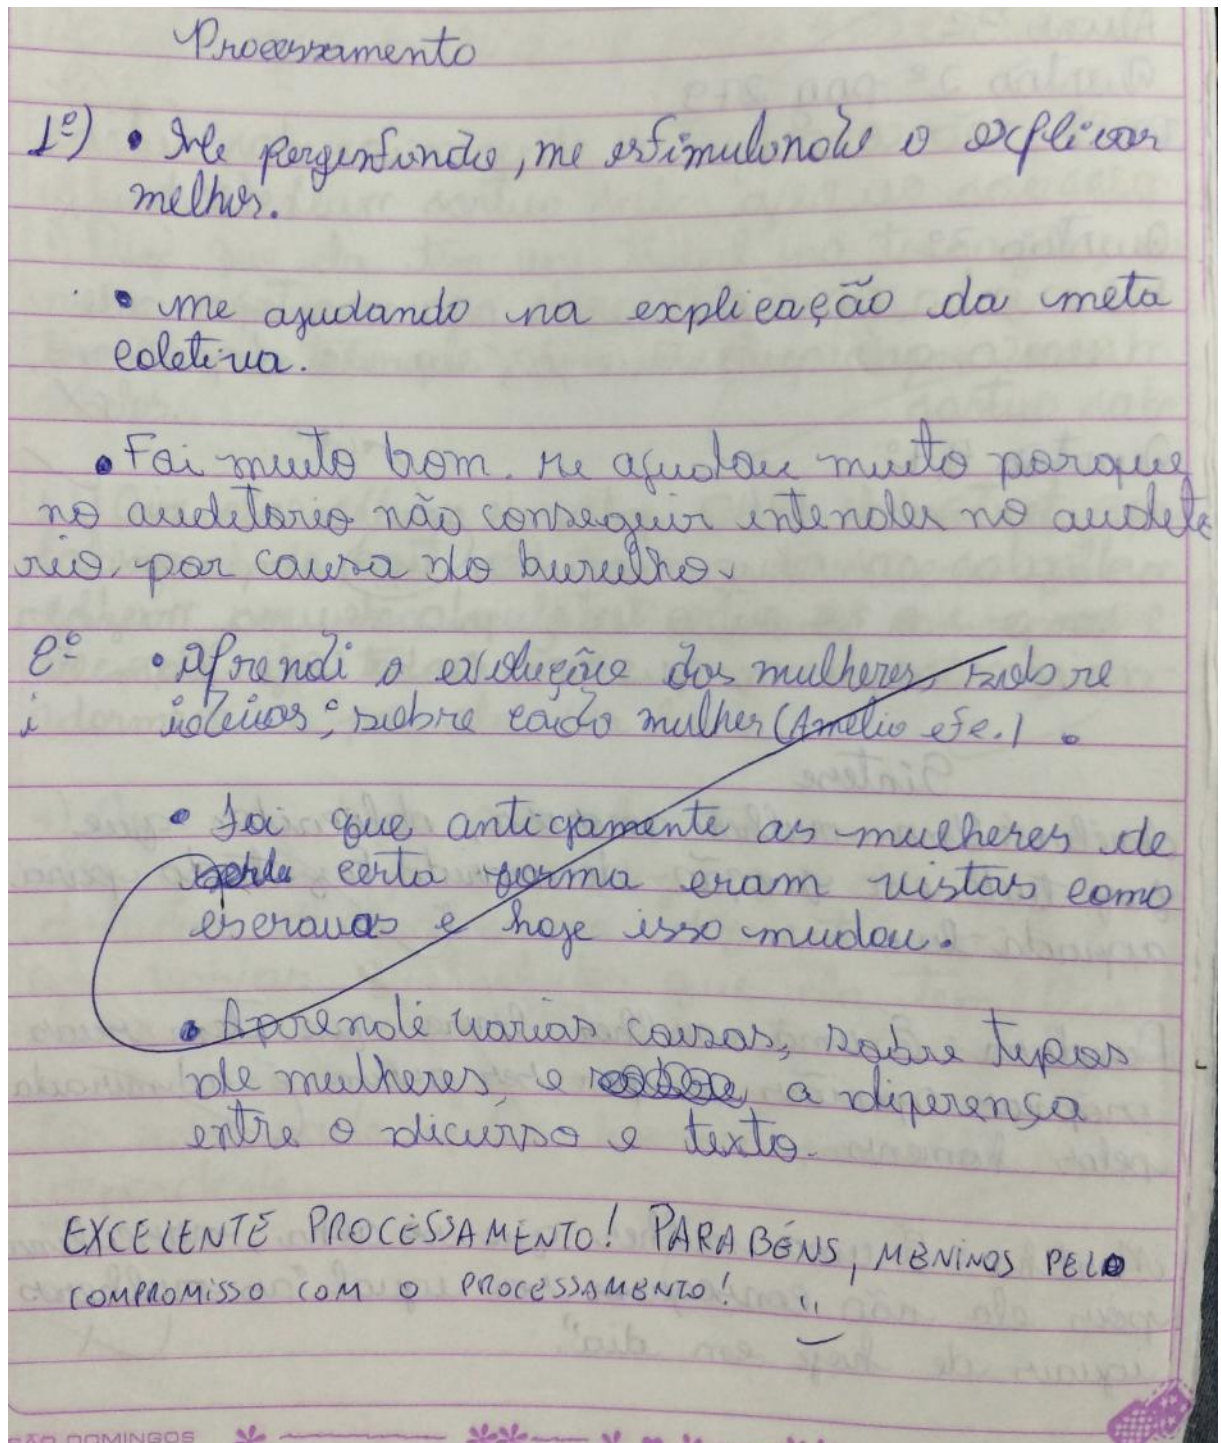 Processamento
1º) • Me pergentando, me estimulando a explicar
melhor.
• me ajudando na explicação da meta
coletiva.
• Foi muito bom. me ajudou muito porque
no auditorio não conseguir intender no audito
rio por causa do burulho.
2º • Aprendi a evolução das mulheres, sobre
ideias; sobre cada mulher (Amelia etc.) .
• Foi que antigamente as mulheres de
certa forma eram vistas como
escravas e hoje isso mudou.
• Aprende varias coisas, sobre tipos
de mulheres, e a diferença
entre o dicurso e texto.
EXCELENTE PROCESSAMENTO! PARABÉNS, MENINOS PELO
COMPROMISSO COM O PROCESSAMENTO!
SÃO DOMINGOS